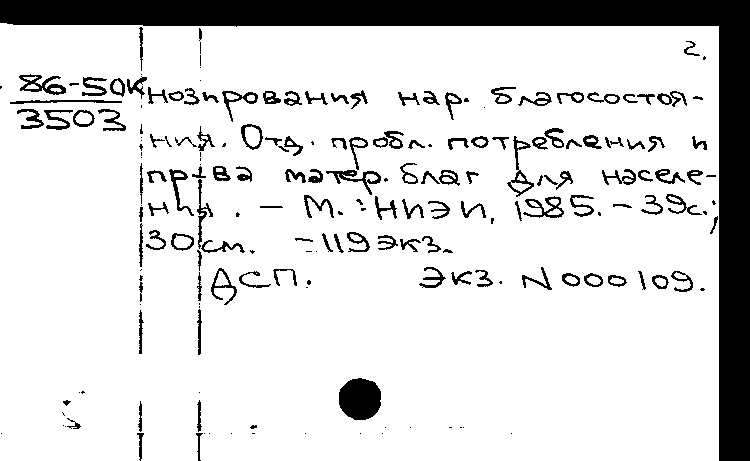 2.
86-50К
3503
нозирования нар. благосостоя-
ния. Отд. пробл. потребления и
пр-ва матер. благ для населе-
ния. – М.: НИЭИ, 1985. – 39с.;
30 см. – 119 экз.
ДСП. Экз. N000109.